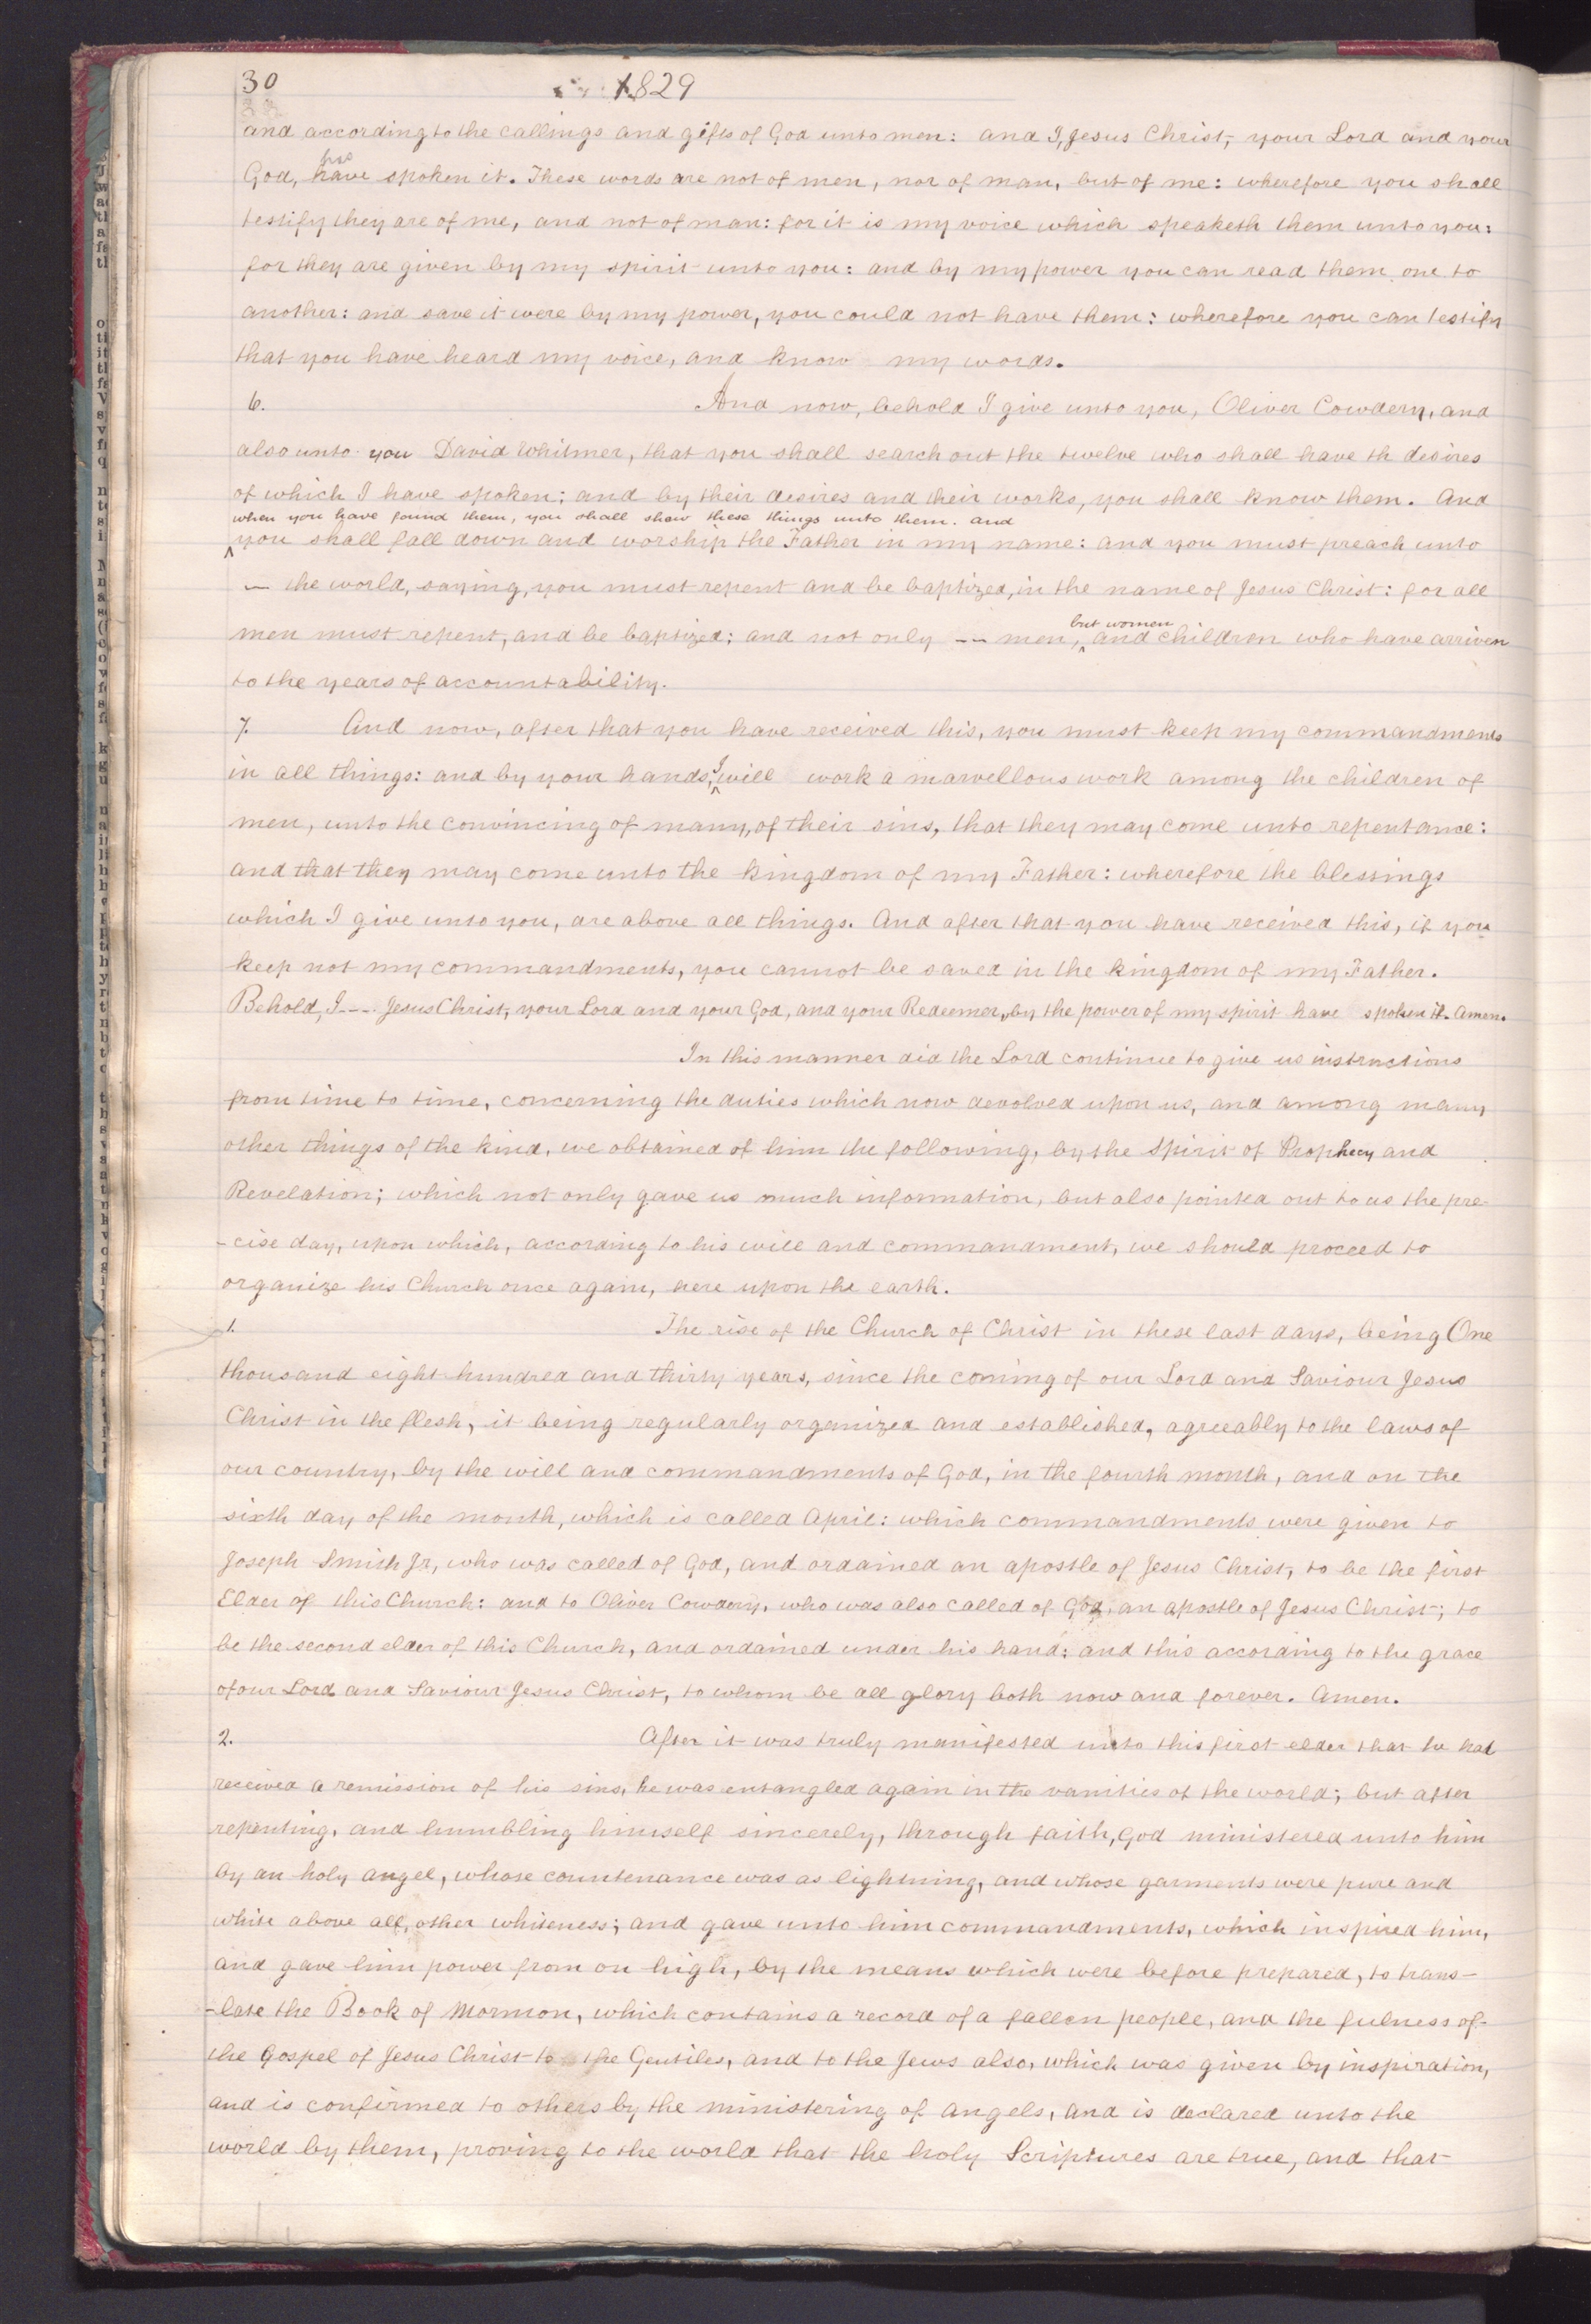 30 1829
and according to the callings and gifts of God unto men: and I, Jesus Christ, your Lord and your
God, have spoken it. These words are not of men, nor of man, but of me: wherefore you shall
testify they are of me, and not of man: for it is my voice which speaketh them unto you:
for they are given by my spirit unto you: and by my power you can read them one to
another: and save it were by my power, you could not have them: wherefore you can testify
that you have heard my voice, and know my words.
6. And now, behold I give unto you, Oliver Cowdery, and
also unto you David Whitmer, that you shall search out the twelve who shall have th desires
of which I have spoken: and by their desires and their works, you shall know them. And
when you have found them, you shall shew these things unto them. and
you shall fall down and worship the Father in my name: and you must preach unto
— the world, saying, you must repent and be baptized, in the name of Jesus Christ: for all
men must repent, and be baptized; and not only -- men, but women and children who have arriven
to the years of accountability.
7. And now, after that you have received this, you must keep my commandments
in all things: and by your hands, I will work a marvellous work among the children of
men, unto the convincing of many, of their sins, that they may come unto repentance:
and that they may come unto the kingdom of my Father: wherefore the blessings
which I give unto you, are above all things. And after that you have received this, if you
keep not my commandments, you cannot be saved in the kingdom of my Father.
Behold, I---- Jesus Christ, your Lord and your God, and your Redeemer, by the power of my spirit have spoken it. Amen.
In this manner did the Lord continue to give us instructions
from time to time, concerning the duties which now devolved upon us, and among many
other things of the kind, we obtained of him the following, by the Spirit of Prophecy and
Revelation; which not only gave us much information, but also pointed out to us the pre-
-cise day, upon which, according to his will and commandment, we should proceed to
organize his Church once again, here upon the earth.
1. The rise of the Church of Christ in these last days, being One
thousand eight hundred and thirty years, since the coming of our Lord and Saviour Jesus
Christ in the flesh, it being regularly organized and established, agreeably to the laws of
our country, by the will and commandments of God, in the fourth month, and on the
sixth day of the month, which is called April: which commandments were given to
Joseph Smith Jr, who was called of God, and ordained an apostle of Jesus Christ, to be the first
Elder of this Church: and to Oliver Cowdery, who was also called of God, an apostle of Jesus Christ; to
be the second elder of this Church, and ordained under his hand: and this according to the grace
of our Lord and Saviour Jesus Christ, to whom be all glory both now and forever. Amen.
2. After it was truly manifested unto this first elder that he had
received a remission of his sins, he was entangled again in the vanities of the world; but after
repenting, and humbling himself sincerely, through faith, God ministered unto him
by an holy angel, whose countenance was as lightning, and whose garments were pure and
white above all, other whiteness; and gave unto him commandments, which inspired him,
and gave him power from on high, by the means which were before prepared, to trans-
-late the Book of Mormon, which contains a record of a fallen people, and the fulness of
the Gospel of Jesus Christ to the Gentiles, and to the Jews also, which was given by inspiration,
and is confirmed to others by the ministering of angels, and is declared unto the
world by them, proving to the world that the holy Scriptures are true, and that